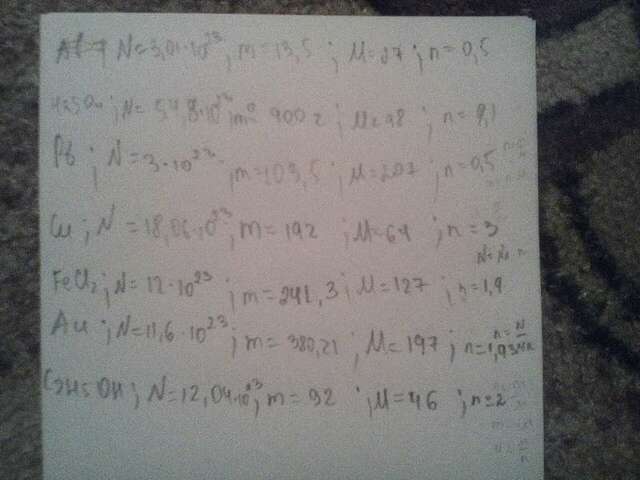 Al → N=3,01·10²³, m=13,5 ; M=27 ; n=0,5
H2SO4 ; N= 54,8·10²³, m= 900 г ; M=98 ; n= 9,1
Pb ; N=3·10²³ ; m=103,5 ; M=207 ; n=0,5
Cu ; N=18,06·10²³ ; m=192 ; M=64 ; n=3
N=Na·n
FeCl2 ; N=12·10²³ ; m=241,3 ; M=127 ; n=1,9
Au ; N=11,6·10²³ ; m=380,21 ; M=197 ; n=1,93
C2H5OH ; N=12,04·10²³ ; m=92 ; M=46 ; n=2